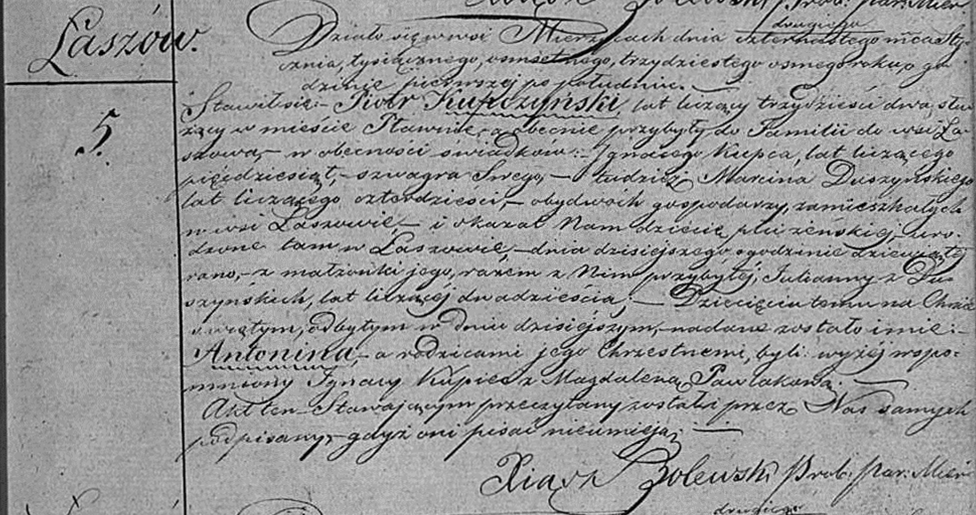 Prob: Par: Mier
Łaszów.
5.
drugiego
Działo się w wsi Mierzycach dnia czternastego m̃ca Sty-
cznia, tysiącznego, osmsetnego, trzydziestego osmego roku, o go
dzinie pierwszej po południu.
Stawił się:- Piotr Kupczyński, lat liczący trzydzieści dwa, słu
żący w mieście a obecnie przybyły do Familii do wsi Ła-
szowa,- w obecności świadków:- Ignacego Kupca, lat liczącego
pięćdziesiąt,- szwagra Swego,- tudzież Marcina Duszyńskiego
lat liczącego czterdzieści,- obydwóch gospodarzy, zamieszkałych
w wsi Łaszowie,- i okazał Nam dziécię płci żeńskiéj, uro-
dzone tam w Łaszowie,- dnia dzisiejszego o godzinie dziewiątéj
rano,- z małżonki jego, razem z Nim przybyłéj, Julianny z Du-
szyńskich, lat liczącéj dwadzieścia;- Dziecięciu temu na Chrzcie
świętym, odbytym w dniu dzisiejszym,- nadane zostało imie:-
Antonina,- a rodzicami jego Chrzestnemi, byli: wyżéj wspo-
mniony Ignacy Kupiec z Magdaleną Pawlakową.
Akt ten Stawającym przeczytany został i przez Nas samych
podpisany,- gdyż oni pisać nieumieją;-
Xiądz Bolewski, Prob: Par: Mier
drugiego